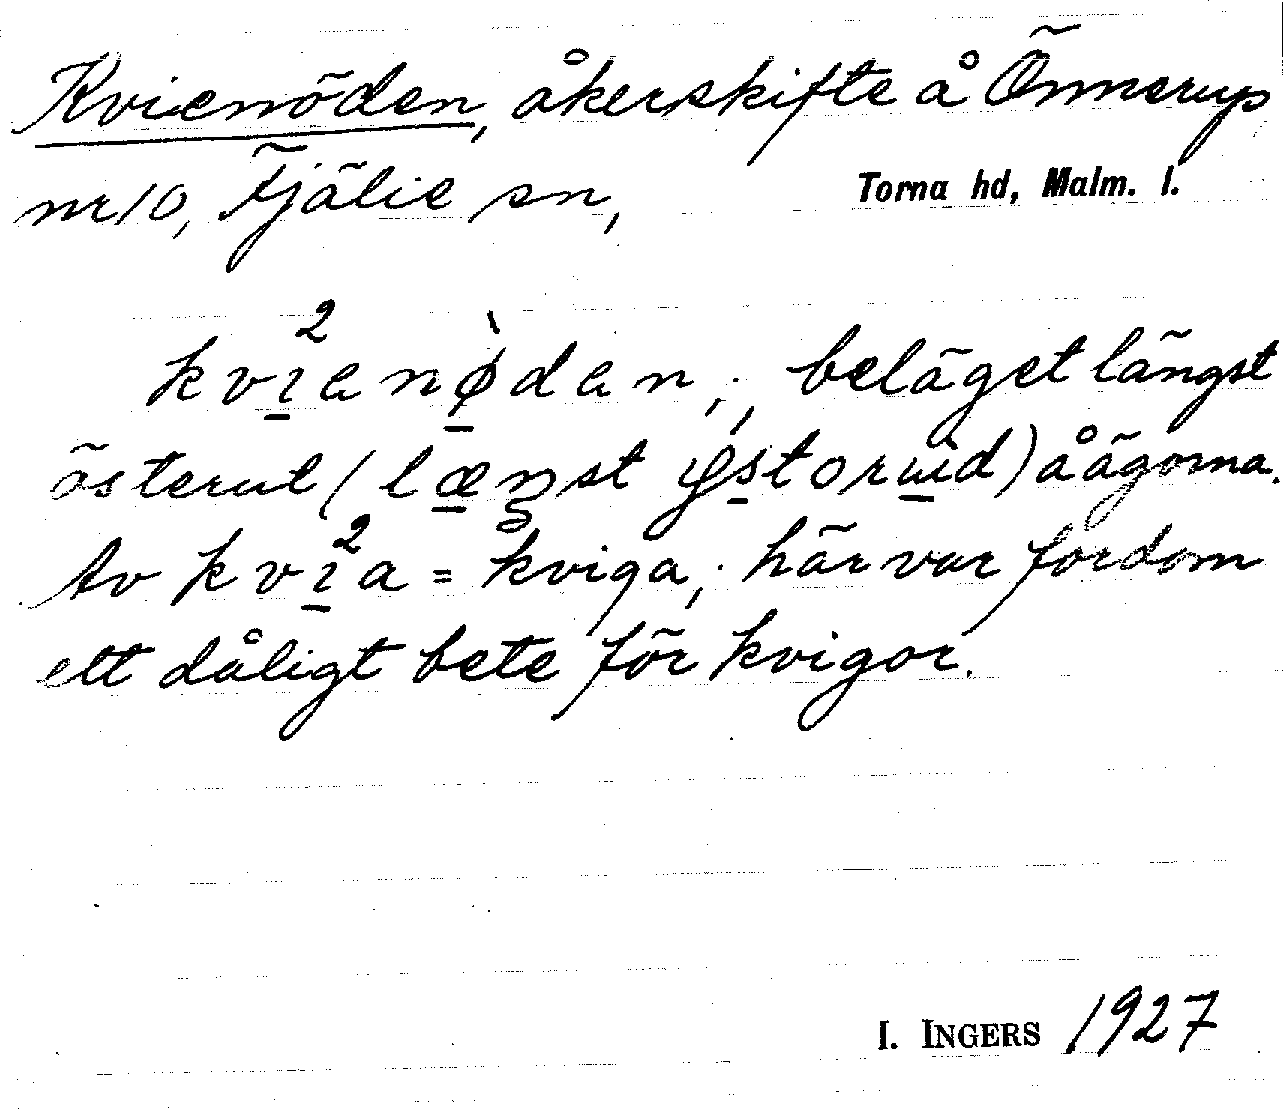 Kvienöden, åkerskifte å Önnerup
nr 10, Fjälie sn, Torna hd, Malm. l.
kvi²enø̀den; beläget längst
österut (længst østorud) å ägorna.
Av kvi²a = kviga; här var fordom
ett dåligt bete för kvigor.
I. INGERS 1927